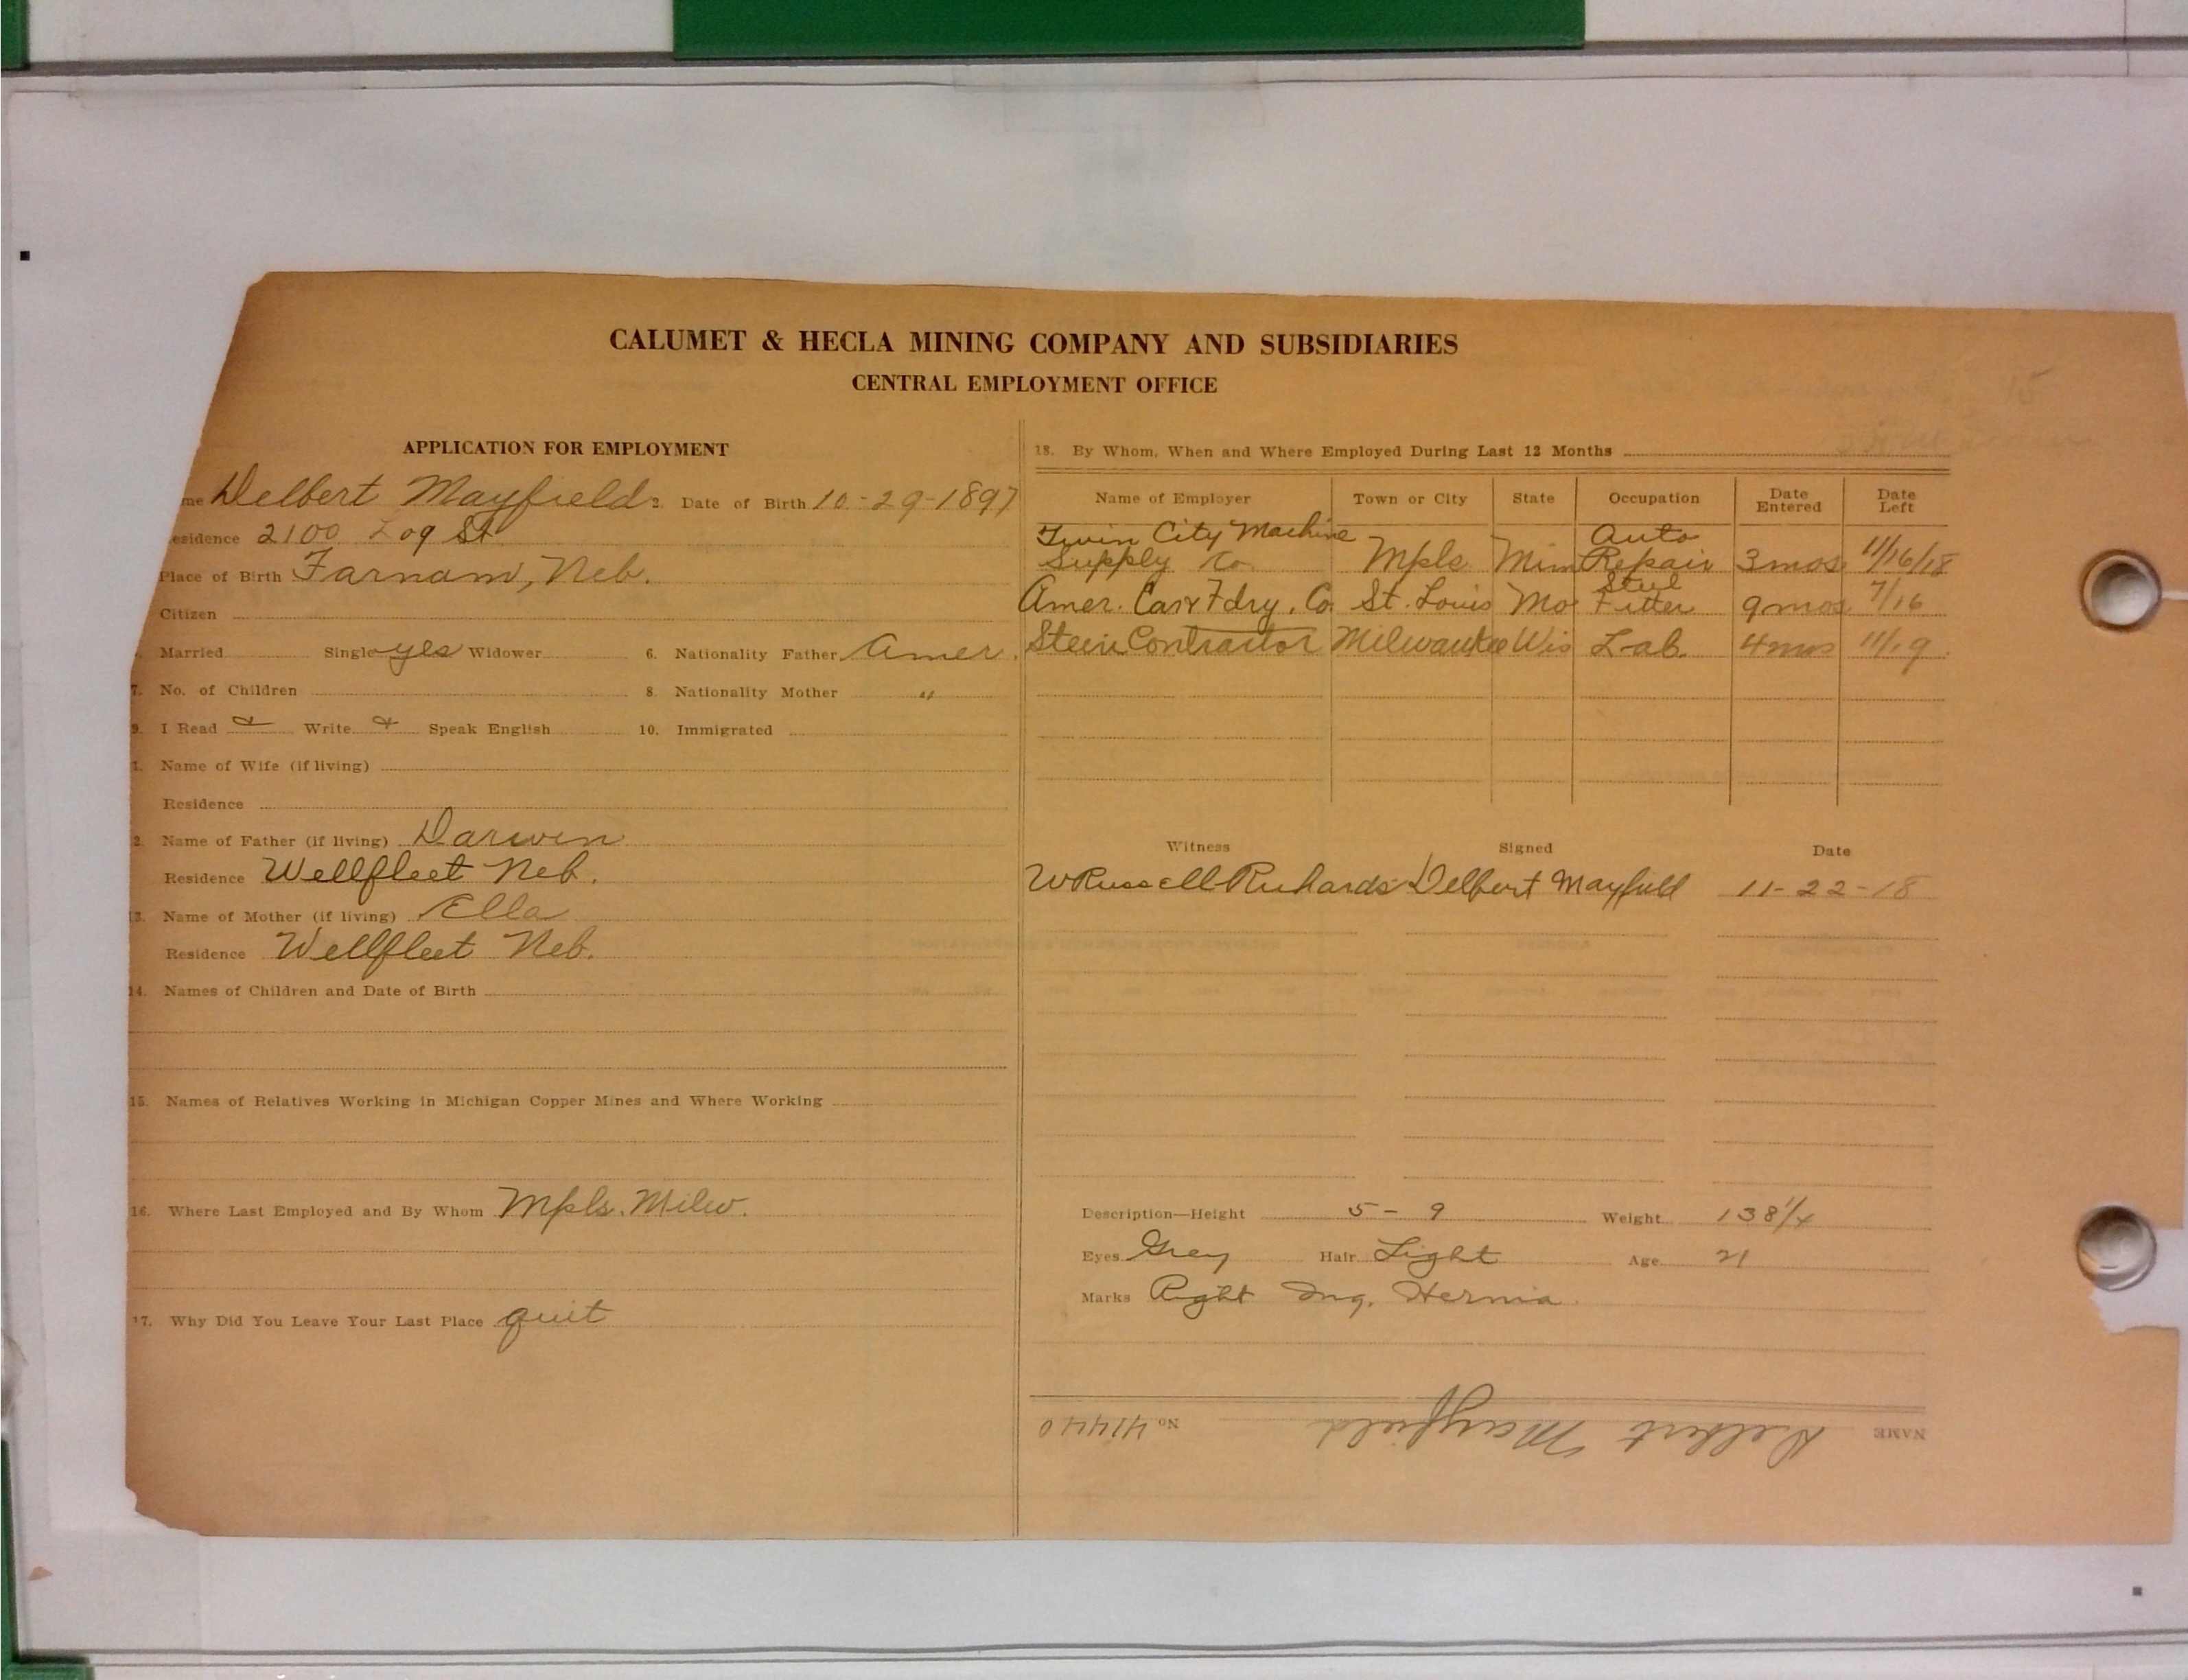 CALUMET & HECLA MINING COMPANY AND SUBSIDIARIES
CENTRAL EMPLOYMENT OFFICE
APPLICATION FOR EMPLOYMENT
me Delbert Mayfield 2. Date of Birth 10-29-1897
esidence 2100 Log St
Place of Birth Farnam, Neb.
Citizen
Married Single yes Widower 6. Nationality Father Amer.
7. No. of Children 8. Nationality Mother "
9. I Read & Write & Speak English 10. Immigrated
1. Name of Wife (if living)
Residence
2. Name of Father (if living) Darwin
Residence Wellfleet Neb.
13. Name of Mother (if living) Ella
Residence Wellfleet Neb.
14. Names of Children and Date of Birth
15. Names of Relatives Working in Michigan Copper Mines and Where Working
16. Where Last Employed and By Whom Mpls. Milw.
17. Why Did You Leave Your Last Place quit
18. By Whom, When and Where Employed During Last 12 Months
Name of Employer Town or City State Occupation Date Entered Date Left
Twin City Machine Auto
Supply Co Mpls Minn Repair 3 mos. 11/16/18
Steel
Amer. Car & Fdry. Co. St. Louis Mo Fitter 9 mos 7/16
Contractor Milwaukee Wis Lab. 4 mos 11/19
Witness Signed Date
W Russell Richards Delbert Mayfield 11-22-18
Description—Height 5-9 Weight 138 1/4
Eyes Grey Hair Light Age 21
Marks Right Ing. Hernia
NAME Delbert Mayfield No 41440